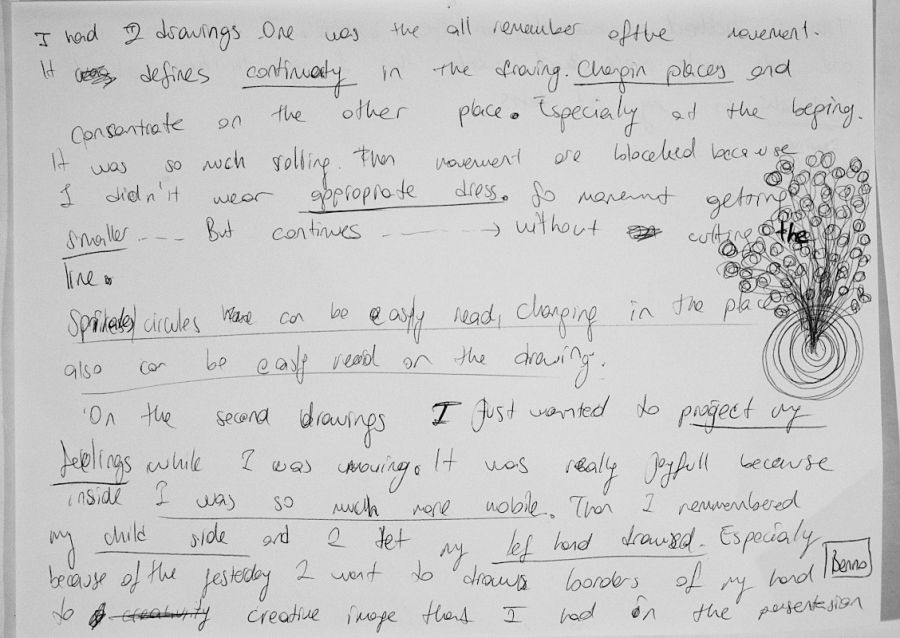 I had 2 drawings. One was the all remember of the movement.
It defines continuaty in the drawing. Changin places and
consantrate on the other place. Especialy at the beging.
It was so much rolling. Than movement are blocked because
I didn't wear appropriate dress. So movemnt getting
smaller ---- But continues -------> without cutting the
line.
Spirales/circules can be easly read, changing in the place
also can be easly read on the drawing.
On the second drawings I just wanted to project my
feelings while I was moving. It was really joyfull because
inside I was so much more mobile. Than I remmembered
my child side and I let my lef hand drawed. Especialy
because of the yesterday I want to draw boorders of my hand
Benno
to creativity creative image that I had in the presentasion